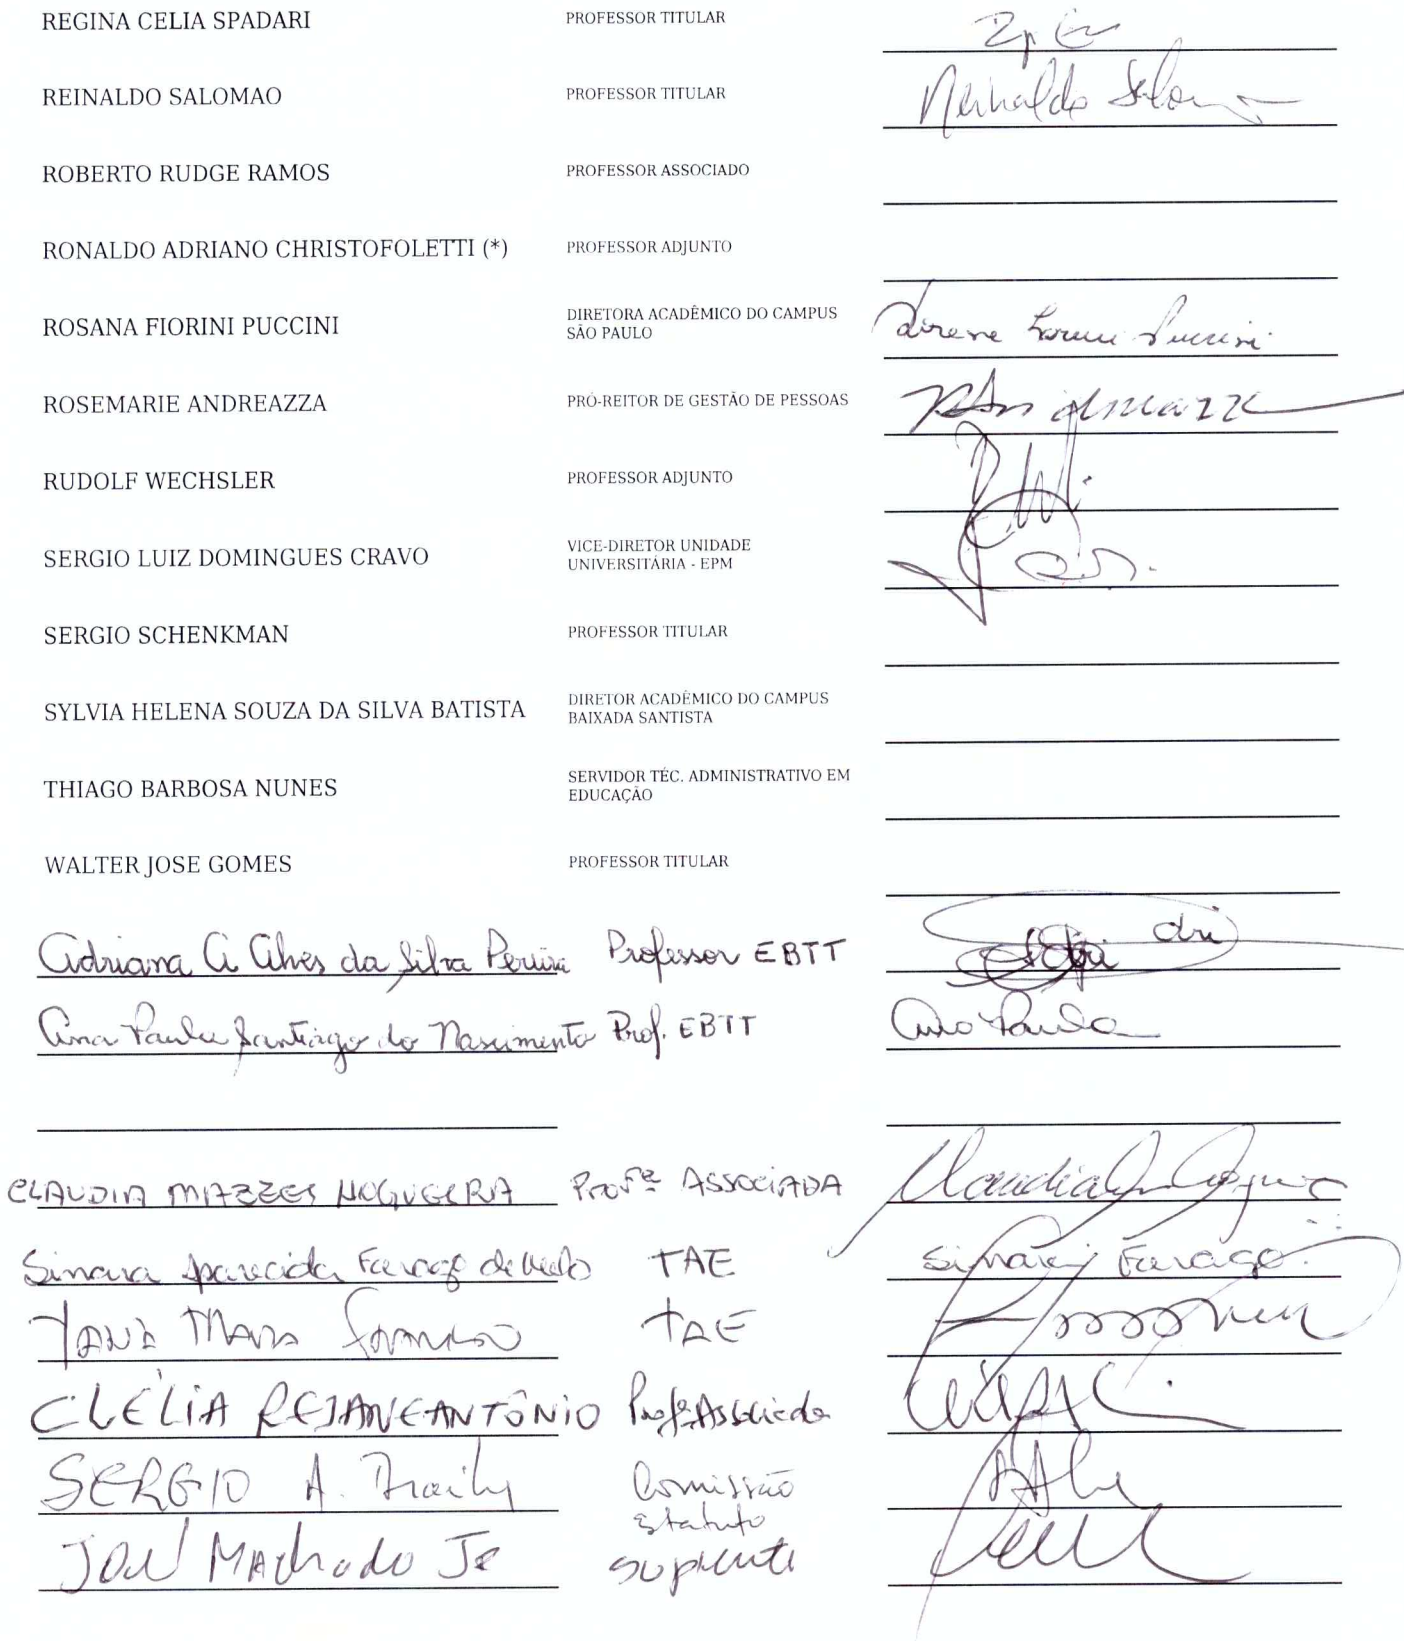 REGINA CELIA SPADARI PROFESSOR TITULAR
REINALDO SALOMAO PROFESSOR TITULAR Reinaldo Salom
ROBERTO RUDGE RAMOS PROFESSOR ASSOCIADO
RONALDO ADRIANO CHRISTOFOLETTI (*) PROFESSOR ADJUNTO
ROSANA FIORINI PUCCINI DIRETORA ACADÊMICO DO CAMPUS
SÃO PAULO
Puccini
ROSEMARIE ANDREAZZA PRÓ-REITOR DE GESTÃO DE PESSOAS
RUDOLF WECHSLER PROFESSOR ADJUNTO
SERGIO LUIZ DOMINGUES CRAVO VICE-DIRETOR UNIDADE
UNIVERSITÁRIA - EPM
SERGIO SCHENKMAN PROFESSOR TITULAR
SYLVIA HELENA SOUZA DA SILVA BATISTA DIRETOR ACADÊMICO DO CAMPUS
BAIXADA SANTISTA
THIAGO BARBOSA NUNES SERVIDOR TÉC. ADMINISTRATIVO EM
EDUCAÇÃO
WALTER JOSE GOMES PROFESSOR TITULAR
Adriana A Alves da Silva Pereira Professor EBTT
Ana Paula Santiago do Nascimento Prof. EBTT Ana Paula
CLAUDIA MAZZEI NOGUEIRA Profª ASSOCIADA Claudia
Simara Aparecida Farago de Melo TAE Simara Farago
TAE
CLÉLIA REJANE ANTÔNIO Profª Associada
SERGIO A. Comissão
Estatuto
Machado Jr Suplente